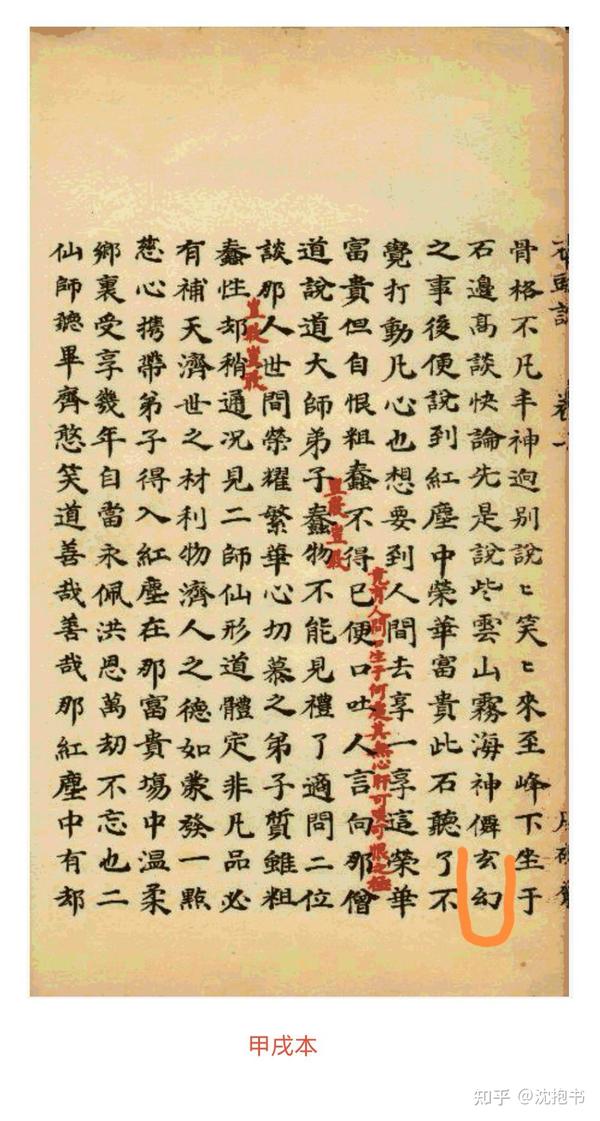 骨格不凡丰神迥别說〻笑〻來至峰下坐于
石邊高談快論先是說些雲山霧海神僊玄幻
之事後便說到紅塵中榮華富貴此石聽了不
覺打動凡心也想要到人間去享一享這榮華
竟有人問口生于何處其無心肝可笑可恨之極
富貴但自恨粗蠢不得已便口吐人言向那僧
豈敢豈敢
道說道大師弟子蠢物不能見禮了適問二位
談那人世間榮耀繁華心切慕之弟子質雖粗
豈敢豈敢
蠢性却稍通况見二師仙形道體定非凡品必
有補天濟世之材利物濟人之德如蒙發一點
慈心携帶弟子得入紅塵在那富貴塲中温柔
鄉裏受享幾年自當永佩洪恩萬劫不忘也二
仙師聽畢齊憨笑道善哉善哉那紅塵中有却
甲戌本
知乎 @沈抱书